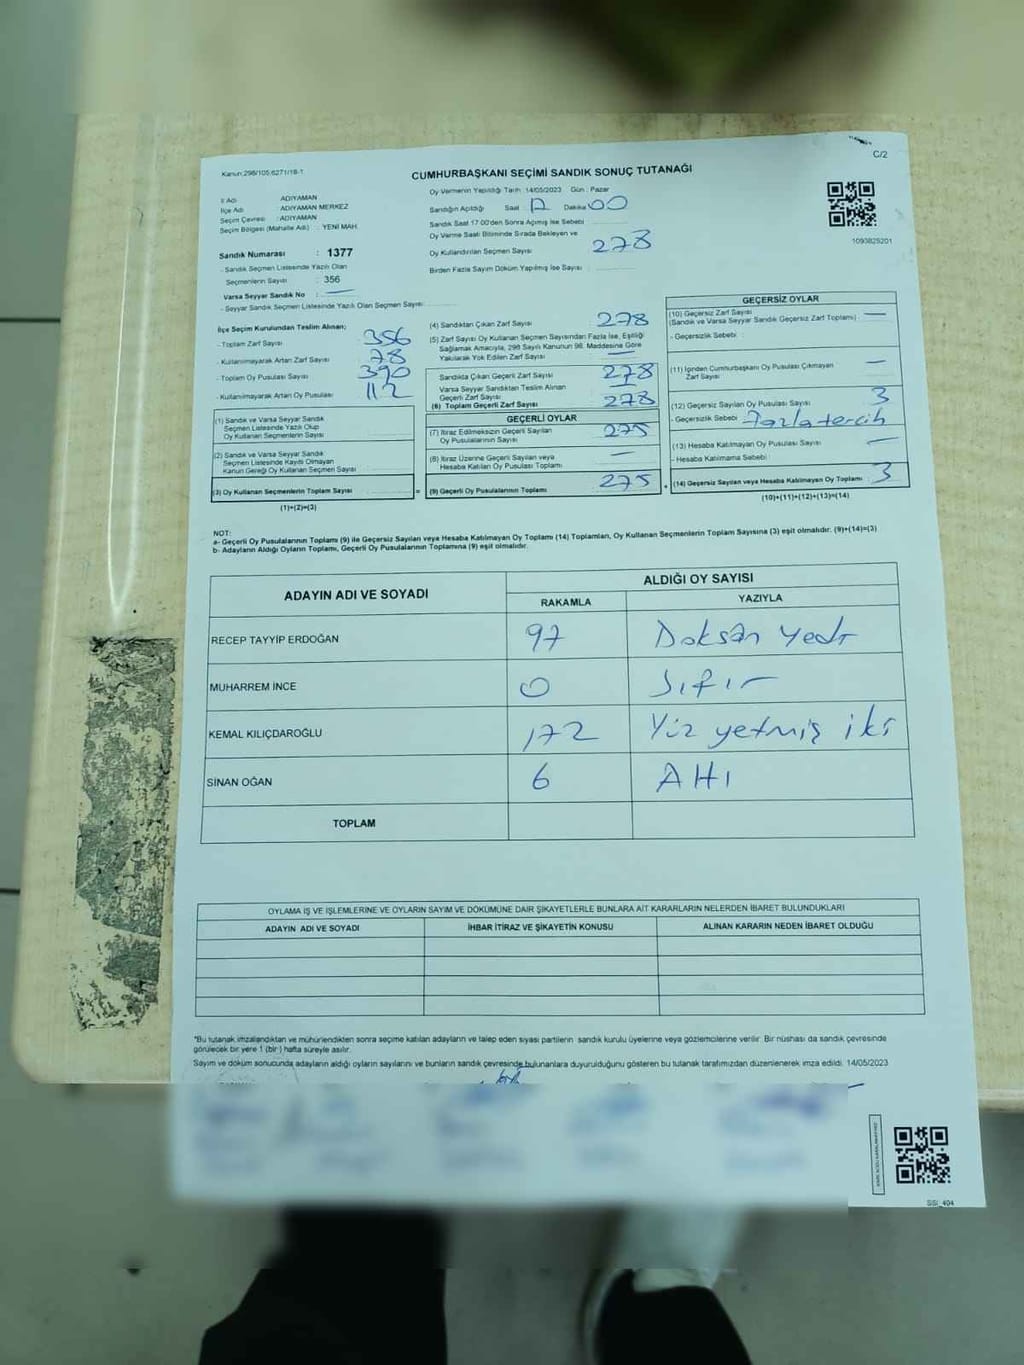 C/2
Kanun:298/105,6271/18-1
CUMHURBAŞKANI SEÇİMİ SANDIK SONUÇ TUTANAĞI
İl Adı : ADIYAMAN
İlçe Adı : ADIYAMAN MERKEZ
Seçim Çevresi : ADIYAMAN
Seçim Bölgesi (Mahalle Adı) : YENİ MAH.
Sandık Numarası : 1377
- Sandık Seçmen Listesinde Yazılı Olan
Seçmenlerin Sayısı : 356
Varsa Seyyar Sandık No :
- Seyyar Sandık Seçmen Listesinde Yazılı Olan Seçmen Sayısı
Oy Vermenin Yapıldığı Tarih :14/05/2023 Gün : Pazar
Sandığın Açıldığı Saat : Dakika 00
Sandık Saat 17:00'den Sonra Açımış İse Sebebi
Oy Verme Saati Bitiminde Sırada Bekleyen ve
Oy Kullandırılan Seçmen Sayısı : 278
Birden Fazla Sayım Döküm Yapılmış İse Sayısı :
1093825201
İlçe Seçim Kurulundan Teslim Alınan;
- Toplam Zarf Sayısı 356
- Kullanılmayarak Artan Zarf Sayısı 78
- Toplam Oy Pusulası Sayısı 390
- Kullanılmayarak Artan Oy Pusulası 112
(1) Sandık ve Varsa Seyyar Sandık
Seçmen Listesinde Yazılı Olup
Oy Kullanan Seçmenlerin Sayısı
(2) Sandık ve Varsa Seyyar Sandık
Seçmen Listesinde Kayıtlı Olmayan
Kanun Gereği Oy Kullanan Seçmen Sayısı
(3) Oy Kullanan Seçmenlerin Toplam Sayısı =
(1)+(2)=(3)
(4) Sandıktan Çıkan Zarf Sayısı 278
(5) Zarf Sayısı Oy Kullanan Seçmen Sayısından Fazla İse, Eşitliği
Sağlamak Amacıyla, 298 Sayılı Kanunun 98. Maddesine Göre
Yakılarak Yok Edilen Zarf Sayısı
Sandıkta Çıkan Geçerli Zarf Sayısı 278
Varsa Seyyar Sandıktan Teslim Alınan
Geçerli Zarf Sayısı
(6) Toplam Geçerli Zarf Sayısı 278
GEÇERLİ OYLAR
(7) İtiraz Edilmeksizin Geçerli Sayılan
Oy Pusulalarının Sayısı 275
(8) İtiraz Üzerine Geçerli Sayılan veya
Hesaba Katılan Oy Pusulası Toplamı
(9) Geçerli Oy Pusulalarının Toplamı 275 +
GEÇERSİZ OYLAR
(10) Geçersiz Zarf Sayısı
(Sandık ve Varsa Seyyar Sandık Geçersiz Zarf Toplamı)
- Geçersizlik Sebebi :
(11) İçinden Cumhurbaşkanı Oy Pusulası Çıkmayan
Zarf Sayısı
(12) Geçersiz Sayılan Oy Pusulası Sayısı 3
- Geçersizlik Sebebi : Fazla tercih
(13) Hesaba Katılmayan Oy Pusulası Sayısı
- Hesaba Katılmama Sebebi :
(14) Geçersiz Sayılan veya Hesaba Katılmayan Oy Toplamı 3
(10)+(11)+(12)+(13)=(14)
NOT:
a- Geçerli Oy Pusulalarının Toplamı (9) ile Geçersiz Sayılan veya Hesaba Katılmayan Oy Toplamı (14) Toplamları, Oy Kullanan Seçmenlerin Toplam Sayısına (3) eşit olmalıdır. (9)+(14)=(3)
b- Adayların Aldığı Oyların Toplamı, Geçerli Oy Pusulalarının Toplamına (9) eşit olmalıdır.
ADAYIN ADI VE SOYADI ALDIĞI OY SAYISI
RAKAMLA YAZIYLA
RECEP TAYYİP ERDOĞAN 97 Doksan Yedi
MUHARREM İNCE 0 Sıfır
KEMAL KILIÇDAROĞLU 172 Yüz yetmiş iki
SİNAN OĞAN 6 Altı
TOPLAM
OYLAMA İŞ VE İŞLEMLERİNE VE OYLARIN SAYIM VE DÖKÜMÜNE DAİR ŞİKAYETLERLE BUNLARA AİT KARARLARIN NELERDEN İBARET BULUNDUKLARI
ADAYIN ADI VE SOYADI İHBAR İTİRAZ VE ŞİKAYETİN KONUSU ALINAN KARARIN NEDEN İBARET OLDUĞU
*Bu tutanak imzalandıktan ve mühürlendikten sonra seçime katılan adayların ve talep eden siyasi partilerin sandık kurulu üyelerine veya gözlemcilerine verilir. Bir nüshası da sandık çevresinde
görülecek bir yere 1 (bir ) hafta süreyle asılır.
Sayım ve döküm sonucunda adayların aldığı oyların sayılarını ve bunların sandık çevresinde bulunanlara duyurulduğunu gösteren bu tutanak tarafımızdan düzenlenerek imza edildi. 14/05/2023
SSI_404